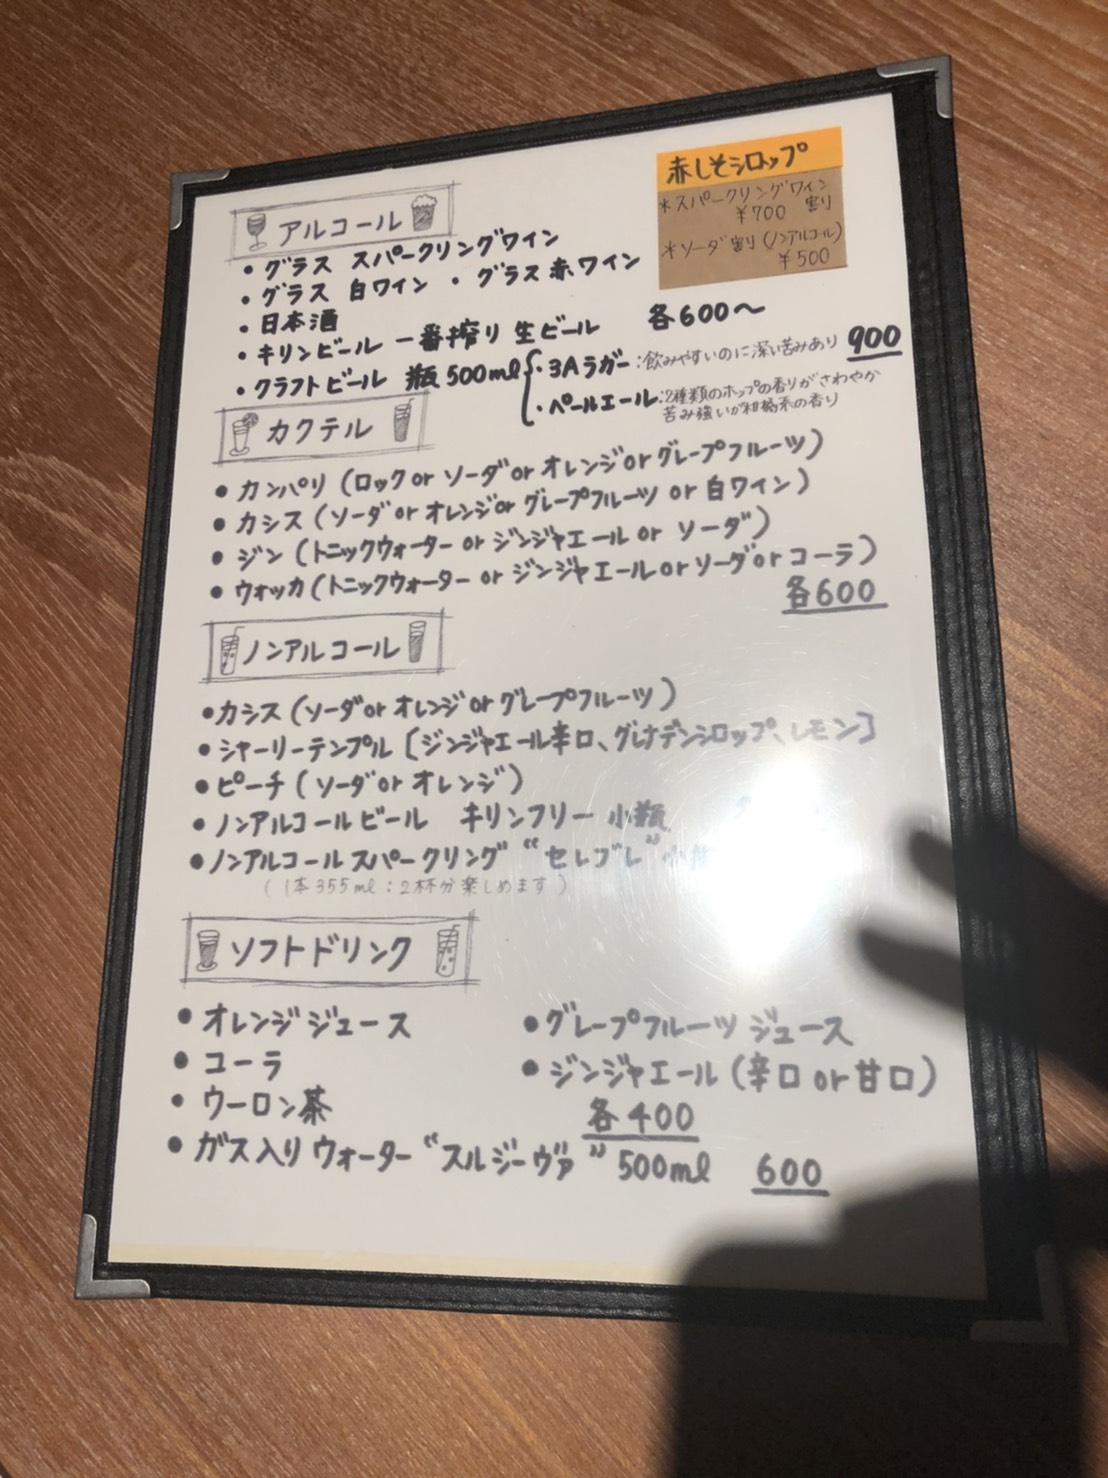 赤しそシロップ
*スパークリングワイン
¥700 割り
*ソーダ割り(ノンアルコール)
¥500
アルコール
・グラス スパークリングワイン
・グラス 白ワイン ・グラス赤ワイン
・日本酒
・キリンビール 一番搾り 生ビール 各600〜
・クラフトビール 瓶500ml{・3Aラガー:飲みやすいのに深い苦みあり 900
・ペールエール:2種類のホップの香りがさわやか
苦み強いが柑橘系の香り
カクテル
・カンパリ(ロック or ソーダ or オレンジ or グレープフルーツ)
・カシス(ソーダ or オレンジ or グレープフルーツ or 白ワイン)
・ジン(トニックウォーター or ジンジャエール or ソーダ)
・ウォッカ(トニックウォーター or ジンジャエール or ソーダ or コーラ)
各600
ノンアルコール
・カシス(ソーダ or オレンジ or グレープフルーツ)
・シャーリーテンプル[ジンジャエール辛口、グレナデンシロップ、レモン]
・ピーチ(ソーダ or オレンジ)
・ノンアルコールビール キリンフリー 小瓶
・ノンアルコールスパークリング "セレブレ" 小
(1本355ml:2杯分楽しめます)
ソフトドリンク
・オレンジジュース ・グレープフルーツジュース
・コーラ ・ジンジャエール(辛口 or 甘口)
・ウーロン茶 各400
・ガス入りウォーター "スルジーヴァ" 500ml 600